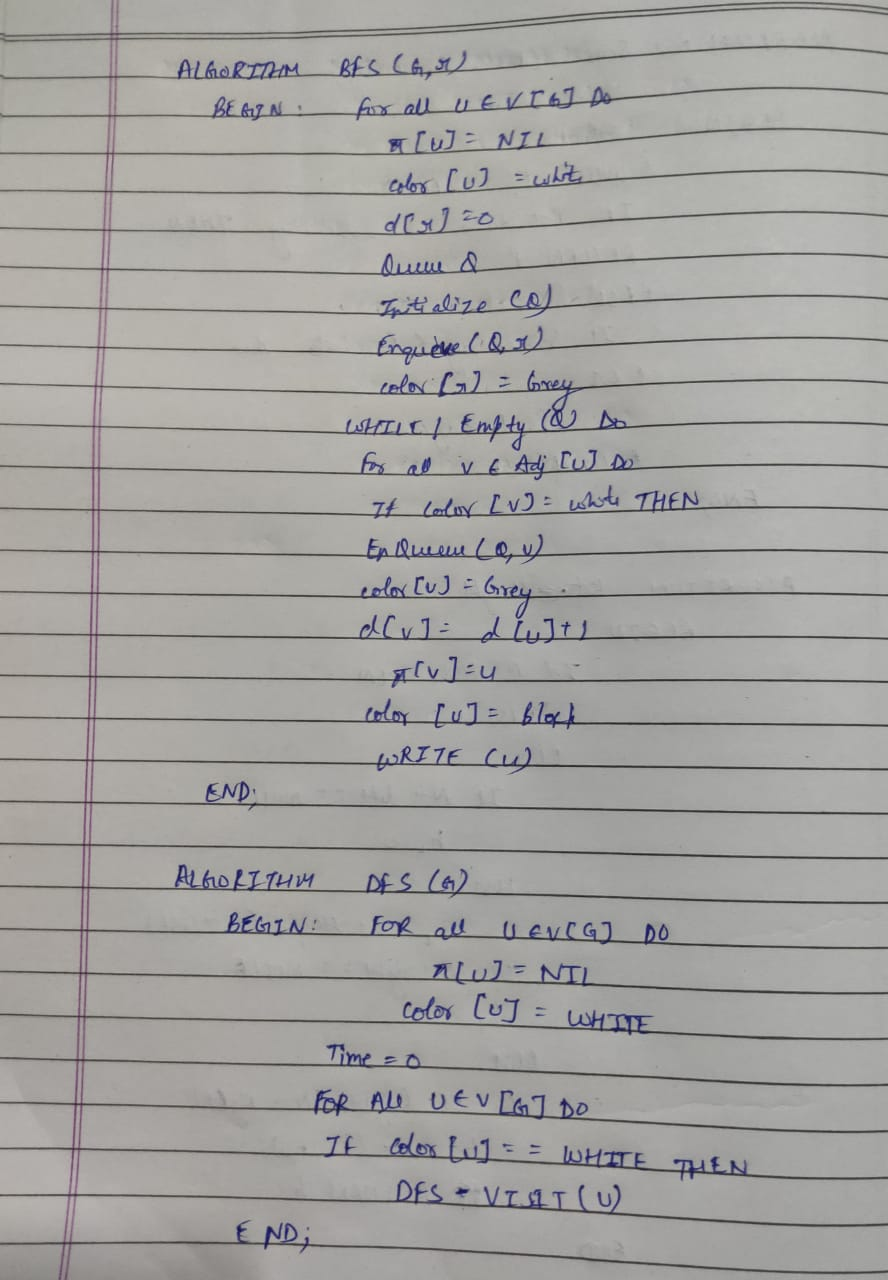 ALGORITHM BFS (G, x)
BEGIN : for all U ∈ V[G] Do
π[U] = NIL
color [U] = white
d[x] = 0
Queue Q
Initialize (Q)
Enqueue (Q, x)
color [x] = Grey
WHILE ! Empty (Q) Do
for all v ∈ Adj [U] Do
If color [V] = white THEN
EnQueue (Q, v)
color [V] = Grey
d[v] = d[u]+1
π[v] = u
color [U] = Black
WRITE (u)
END;
ALGORITHM DFS (G)
BEGIN: FOR all U ∈ V[G] DO
π[U] = NIL
color [U] = WHITE
Time = 0
FOR All U ∈ V [G] DO
If color [U] = = WHITE THEN
DFS - VISIT (U)
END;